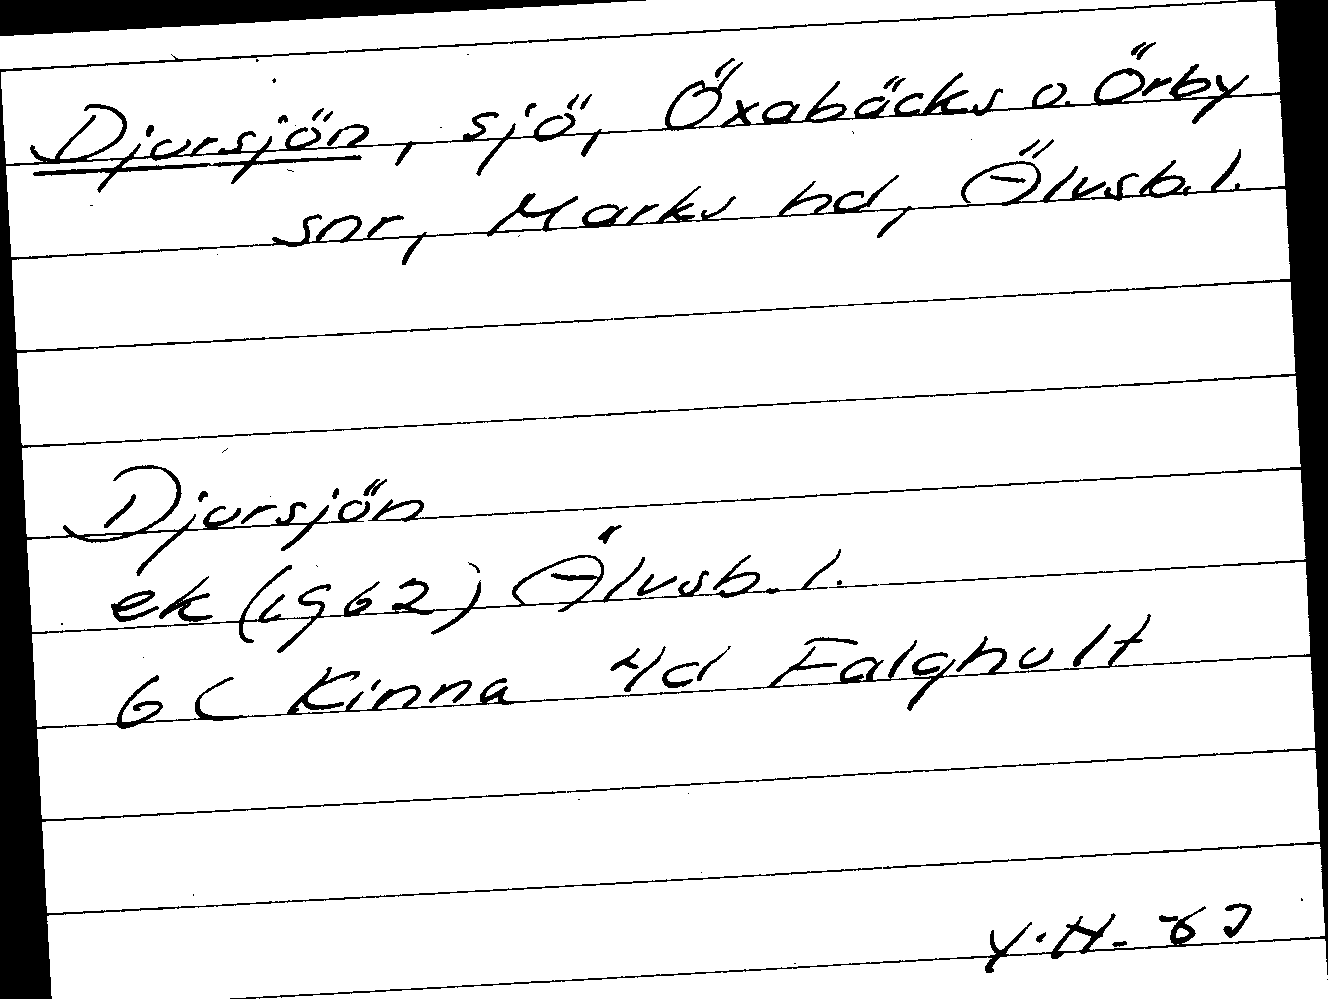 Djursjön, sjö, Öxabäcks o. Örby
snr, Marks hd, Älvsb. l.
Djursjön
ek (1962) Älvsb. l.
6 C Kinna 4d Falghult
Y.H.